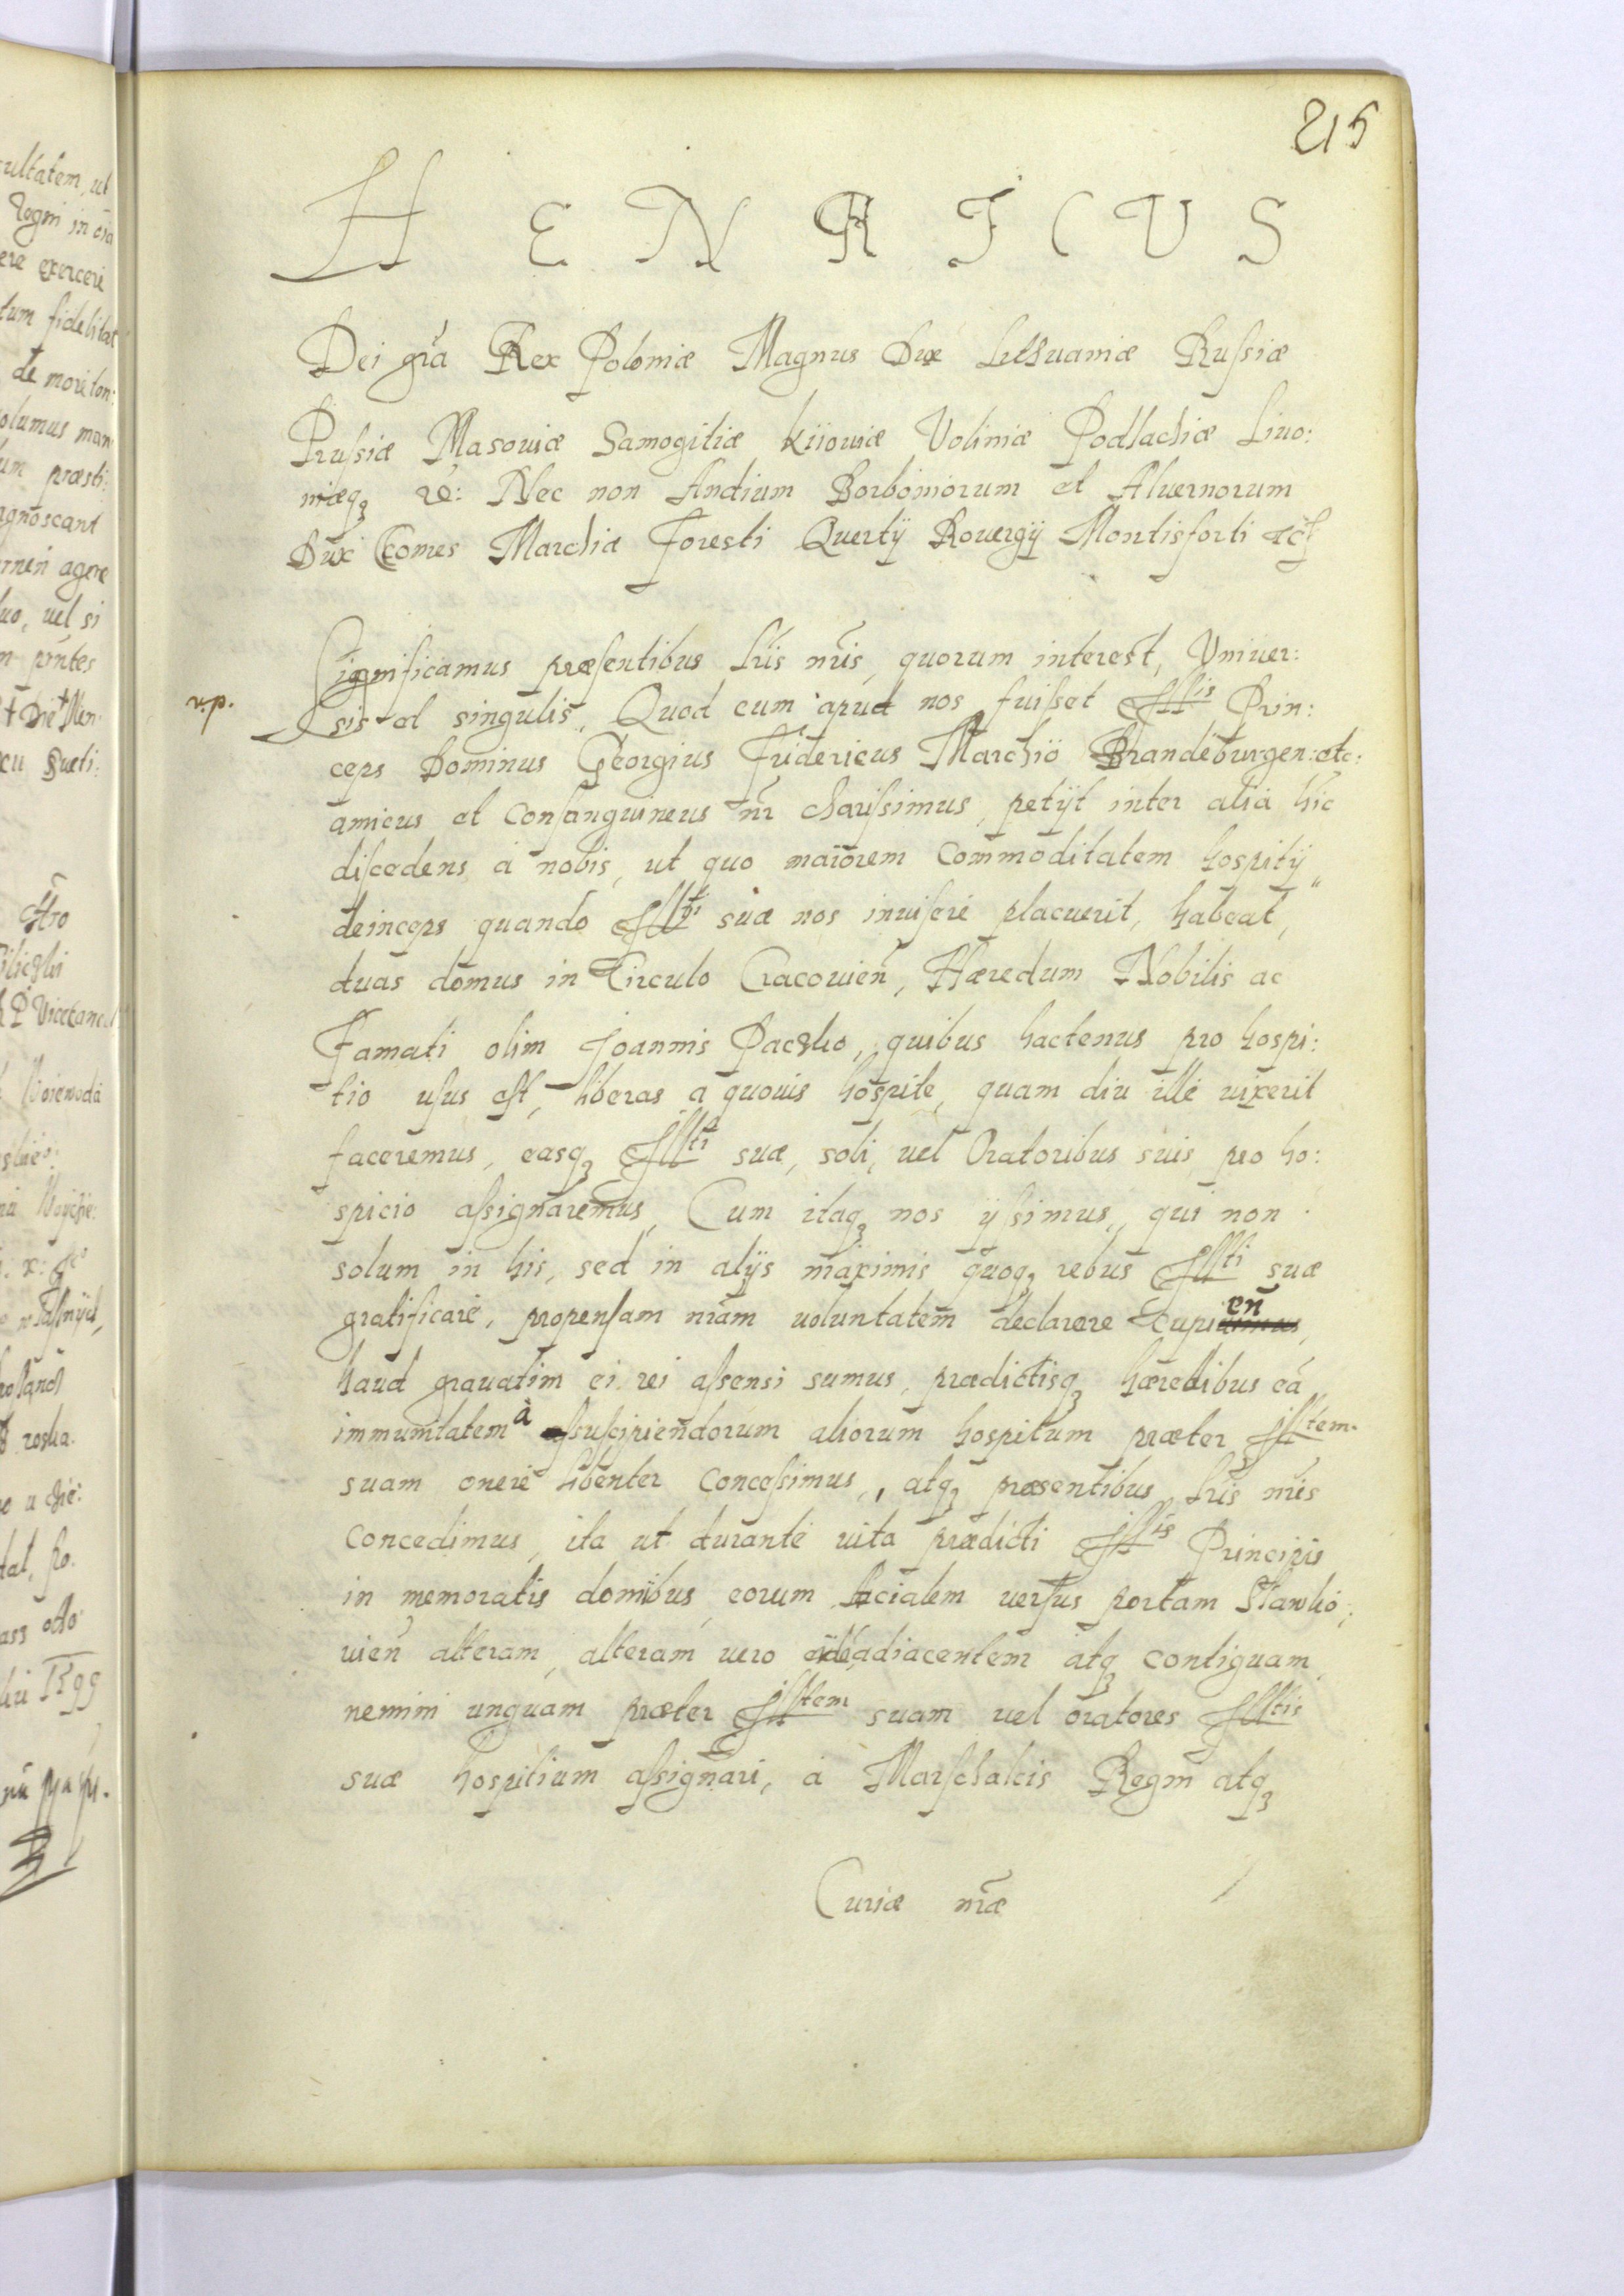 215
HENRICUS
Dei gra͂ Rex Poloniæ Magnus Dux Lithuaniæ Russiæ
Prussiæ Masouiæ Samogitiæ Kiiouiæ Voliniæ Podlachiæ Liuo:
niæq3 &c: Nec non Andium Borboniorum et Aluernorum
Dux Comes Marchiæ Foresti Quertij Rouergij Montisforti etc
Significamus præsentibus Lris nris, quorum interest, Vniuer:
v.p.
sis et singulis, Quod cum apud nos fuisset Illis Prin:
ceps Dominus Georgius Fridericus Marchio Brandeburgen: etc:
amicus et Consanguineus nr charissimus, petijt inter alia hic
discedens á nobis, ut quo maiorem Commoditatem hospitij
deinceps quando Illti suæ nos inuisere placuerit, habeat,
duas domus in Circulo Cracouien͂, Hæredum Nobilis ac
Famati olim Joannis Paczko, quibus hactenus pro hospi:
tio usus est, liberas a quouis hospite, quam diu ille uixerit
faceremus, easq3 Illti suæ, soli, uel Oratoribus suis pro ho:
spicio assignaremus, Cum itaq3 nos ij simus, qui non
solum in his, sed in alijs maximis quoq3 rebus Illti suæ
gratificare, propensam nram uoluntatem declarare Cupi en͂
haud grauatim ei rei assensi sumus, prædictisq3 hæredibus eá
immunitatem à suscipiendorum aliorum hospitum præter Illtem.
suam onere libenter Concessimus, atq3 præsentibus Lris nris
Concedimus, ita ut durante uita prædicti Illis Principis
in memoratis domibus, eorum acialem uersus portam Slawko:
uien͂ alteram, alteram uero adiacentem atq3 contiguam,
nemini unquam præter Illtem suam uel oratores Illtis
suæ hospitium assignari, á Marschalcis Regni atq3
Curiæ nræ